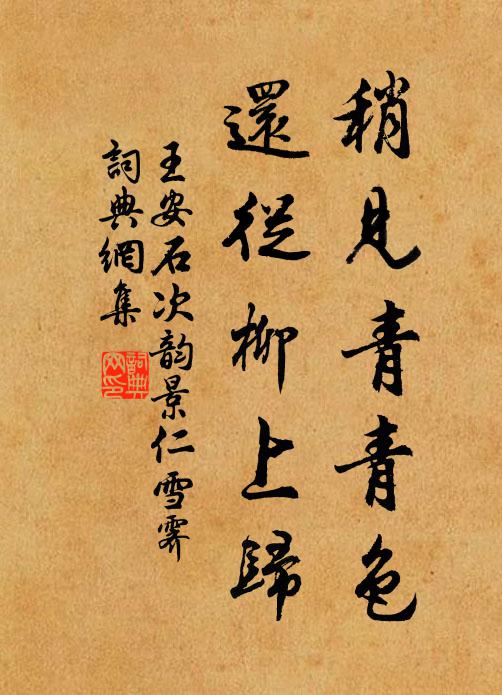 稍見青青色
還從柳上歸
王安石次韵景仁雪霽
詞典網集
詞典網印